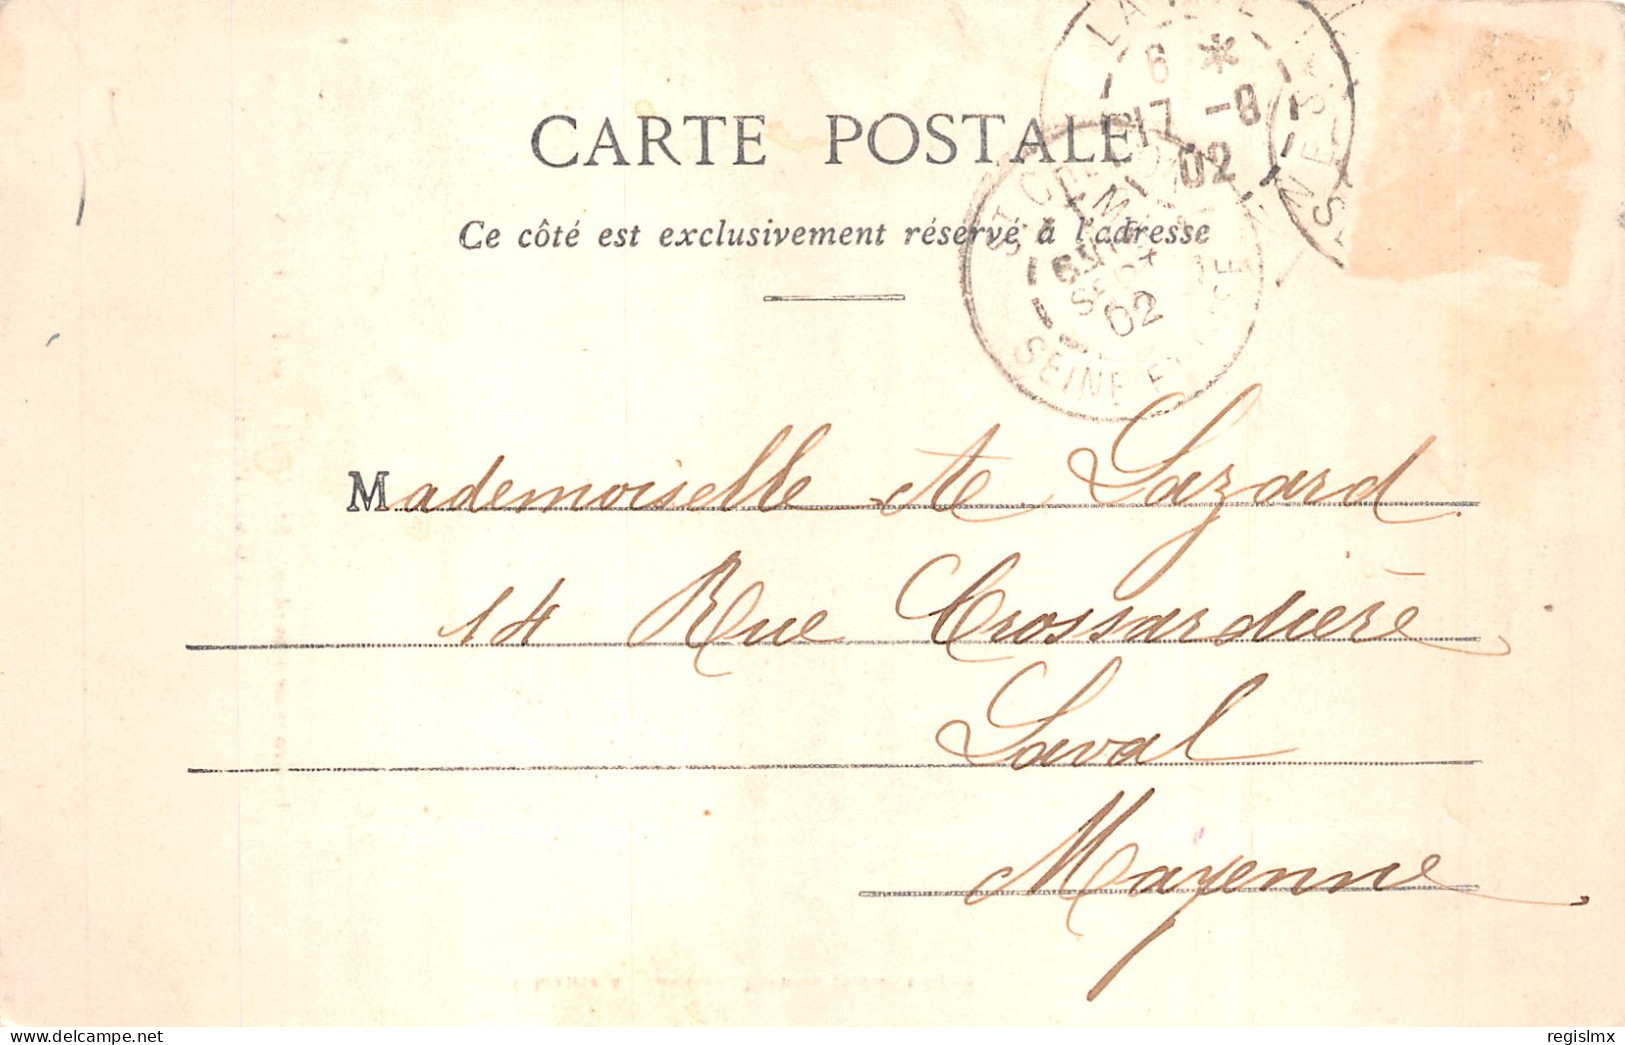 CARTE POSTALE
Ce côté est exclusivement réservé à l'adresse
LA
6 *
17 -8
02
ST GERMAIN
02
SEINE ET OISE
Mademoiselle A Lazard
14 Rue Crossardière
Laval
Mayenne
delcampe.net
regislmx